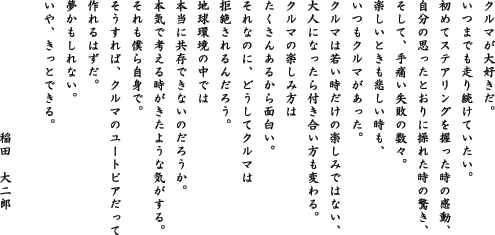 クルマが大好きだ。
いつまでも走り続けていたい。
初めてステアリングを握った時の感動、
自分の思ったとおりに操れた時の驚き、
そして、手痛い失敗の数々。
楽しいときも悲しい時も、
いつもクルマがあった。
クルマは若い時だけの楽しみではない、
大人になったら付き合い方も変わる。
クルマの楽しみ方は
たくさんあるから面白い。
それなのに、どうしてクルマは
拒絶されるんだろう。
地球環境の中では
本当に共存できないのだろうか。
本気で考える時がきたような気がする。
それも僕ら自身で。
そうすれば、クルマのユートピアだって
作れるはずだ。
夢かもしれない。
いや、きっとできる。
稲田 大二郎